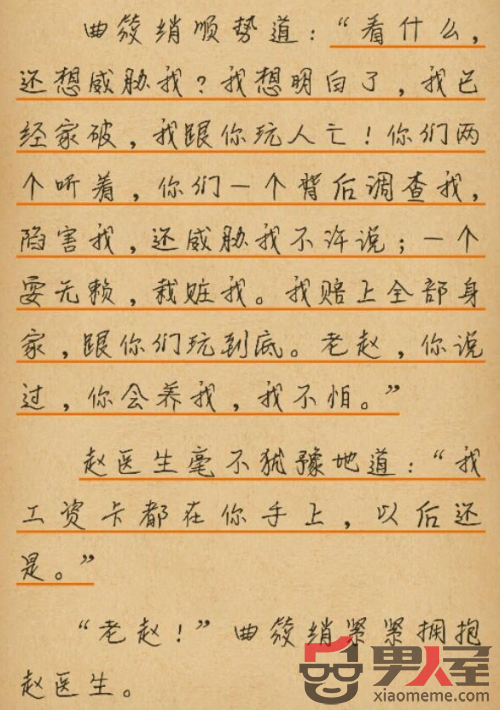 曲筱绡顺势道：“看什么，
还想威胁我？我想明白了，我已
经家破，我跟你玩人亡！你们两
个听着，你们一个背后调查我，
陷害我，还威胁我不许说；一个
耍无赖，栽赃我。我赔上全部身
家，跟你们玩到底。老赵，你说
过，你会养我，我不怕。”
赵医生毫不犹豫地道：“我
工资卡都在你手上，以后还
是。”
“老赵！”曲筱绡紧紧拥抱
赵医生。
男人屋
xiaomeme.com